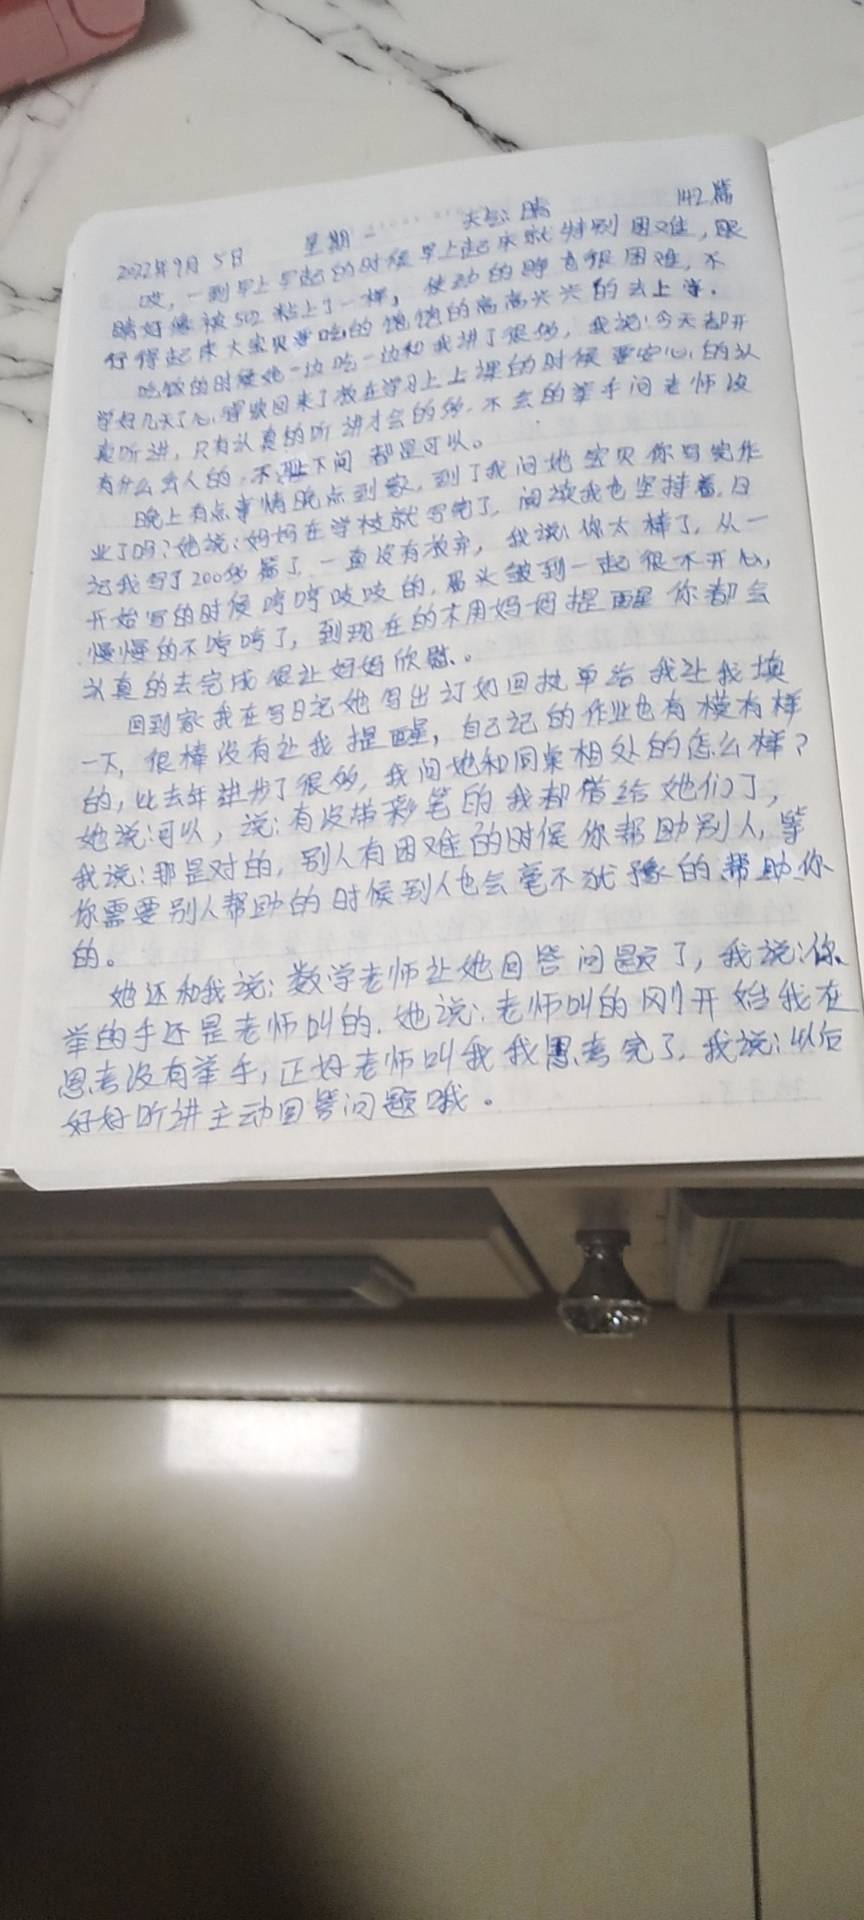 2022年9月5日 星期一 天气:晴 142篇
哎,一到早上早起的时候早上起来就特别困难,眼
睛好像被502粘上了一样,使劲的睁着很困难,不
行得起来大宝贝要吃的饱饱的高高兴兴的去上学。
吃饭的时候她一边吃一边和我讲了很多,我说:今天都开
学好几天了心得收回来了放在学习上上课的时候要安心的认
真听讲,只有认真的听讲才会的多,不会的举手问老师没
有什么丢人的,不耻下问都是可以。
晚上有点事情晚点到家,到了我问她宝贝你写完作
业了吗?她说:妈妈在学校就写完了,阅读我也坚持着,日
记我写了200多篇了,一直没有放弃,我说:你太棒了,从一
开始写的时候哼哼吱吱的,眉头皱到一起很不开心,
慢慢的不哼哼了,到现在的不用妈妈提醒你都会
认真的去完成很让妈妈欣慰。
回到家我在写日记她写出订奶回执单给我让我填
一下,很棒没有让我提醒,自己记的作业也有模有样
的,比去年进步了很多,我问她和同桌相处的怎么样?
她说:可以,说:有没带彩笔的我都借给她们了,
我说:那是对的,别人有困难的时候你帮助别人,等
你需要别人帮助的时候到人也会毫不犹豫的帮助你
的。
她还和我说:数学老师让她回答问题了,我说:你
举的手还是老师叫的,她说:老师叫的刚开始我在
思考没有举手,正好老师叫我我思考完了,我说:以后
好好听讲主动回答问题哦。